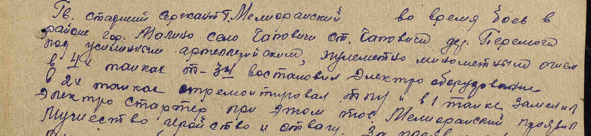 Гв. старший сержант т. Мелиоранский во время боев в
районе гор. Малино село Гаповичи ст. Гаповичи дер. Перемога
под усиленным артиллерийским, пулеметно минометным огнем
в 4х танках Т-34 востановил электро оборудование
в 2х танках отремонтировал и в 1 танке заменил
электро стартер при этом тов. Мелиоранский проявил
мужество геройство и отвагу.